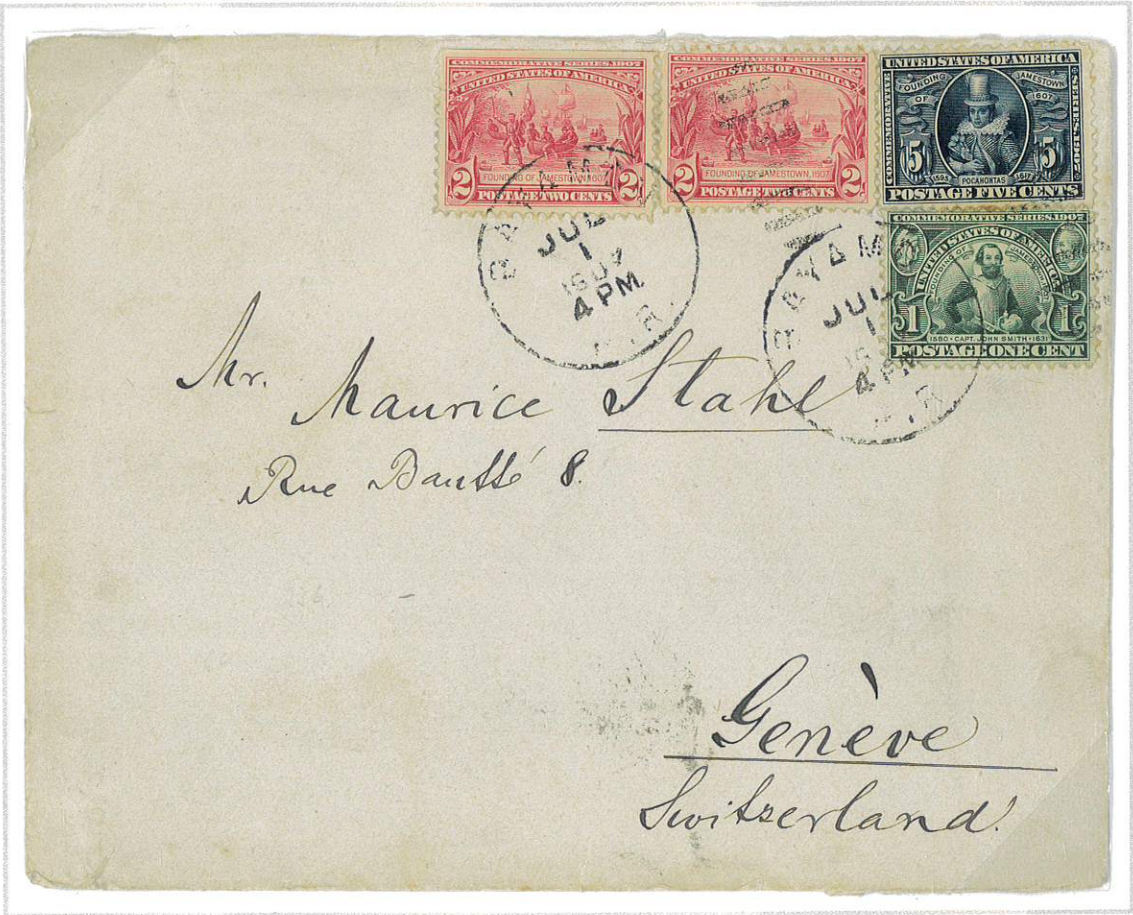 COMMEMORATIVE SERIES 1907
UNITED STATES OF AMERICA
FOUNDING OF JAMESTOWN, 1607
2 2
POSTAGE TWO CENTS
COMMEMORATIVE SERIES 1907
UNITED STATES OF AMERICA
FOUNDING OF JAMESTOWN, 1607
2 2
POSTAGE TWO CENTS
UNITED STATES OF AMERICA
COMMEMORATIVE SERIES 1907
FOUNDING OF JAMESTOWN 1607
5 5
1595 POCAHONTAS 1617
POSTAGE FIVE CENTS
COMMEMORATIVE SERIES, 1907
UNITED STATES OF AMERICA
FOUNDING OF JAMESTOWN 1607
1 1
1580 • CAPT. JOHN SMITH • 1631
POSTAGE ONE CENT
JUL
1
1907
4 PM
JUL
1
4 PM
Mr. Maurice Stahl
Rue 8.
Genève
Switzerland.